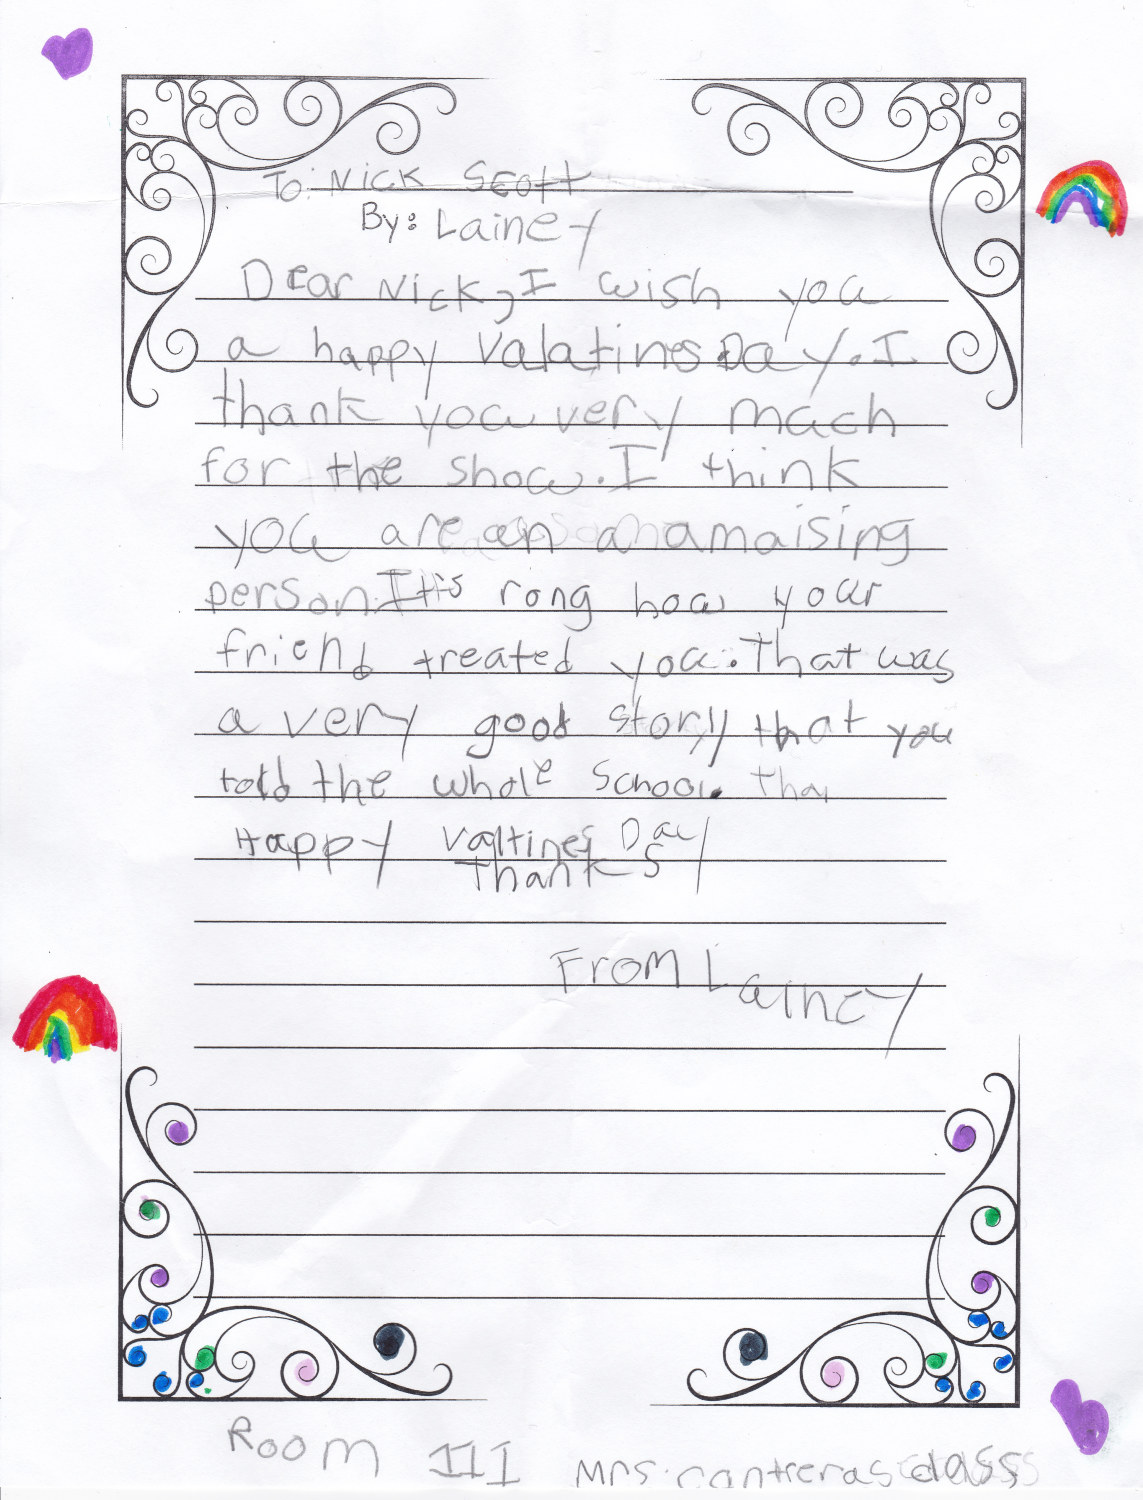 To: Nick Scott
By: Lainey
Dear Nick, I wish you
a happy Valatines Day. I
thank you very mach
for the show. I think
you are an a amaising
person. It's rong how your
friend treated you. That was
a very good story that you
told the whole School. Tha
Happy Valtines Day
Thanks
From Lainey
Room 111 Mrs. contreras class